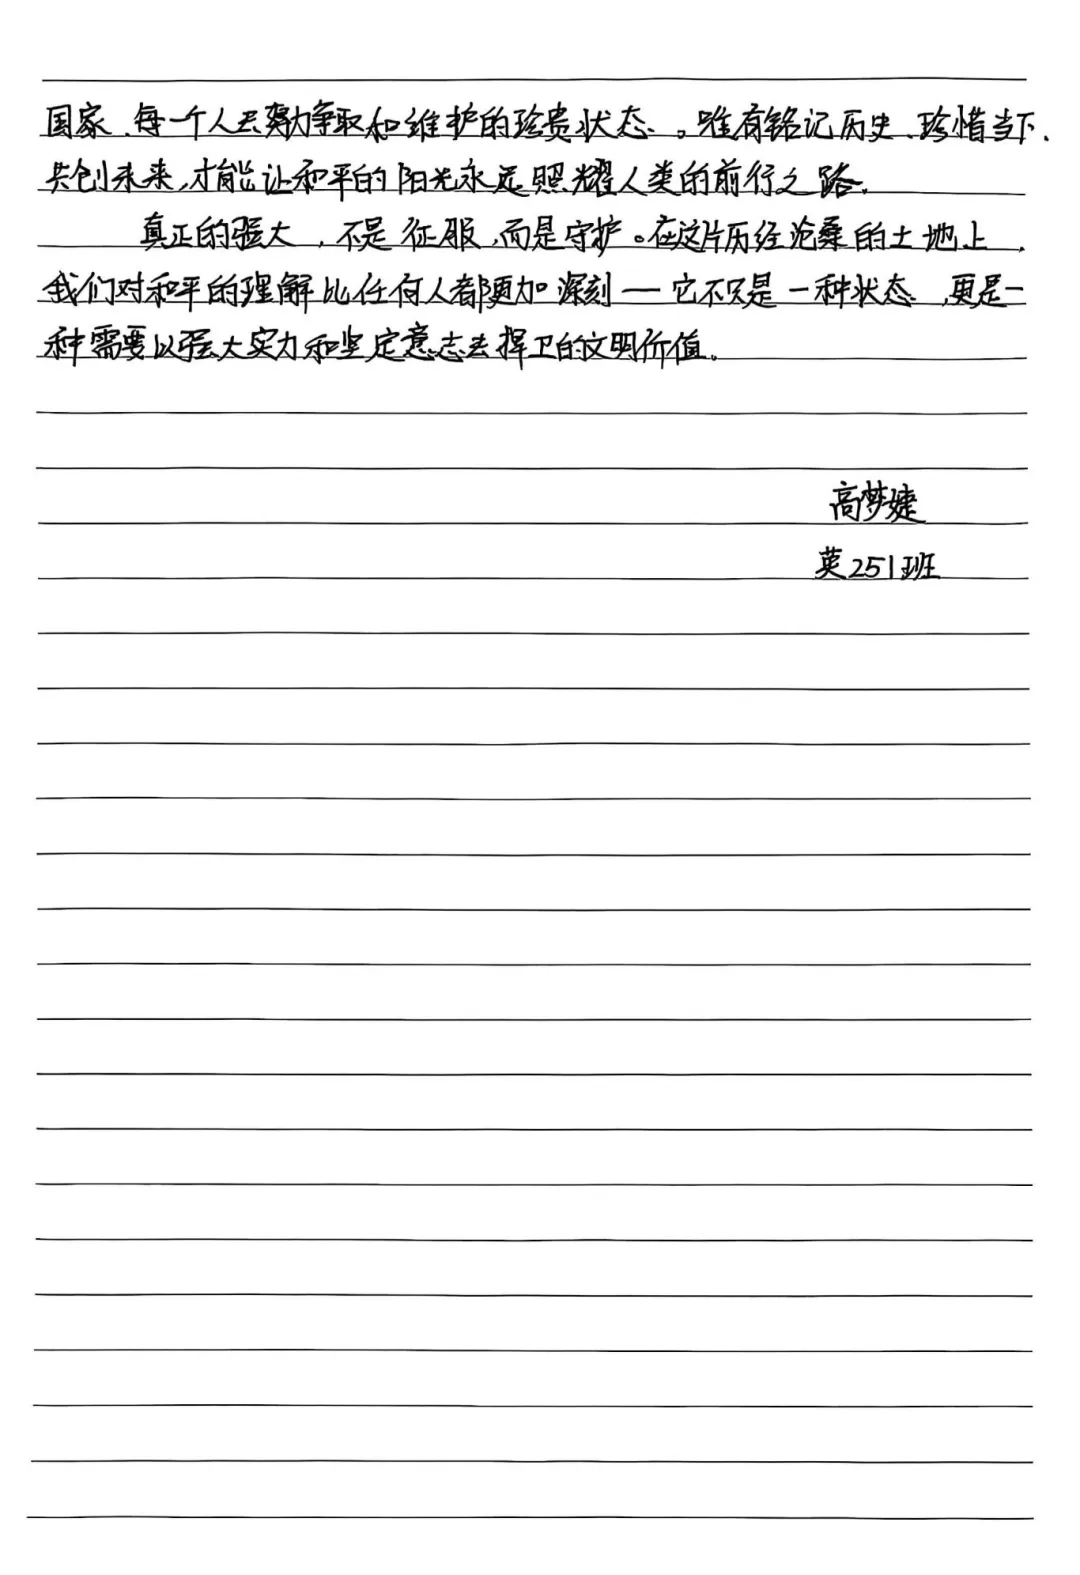 国家、每一个人去努力争取和维护的珍贵状态。唯有铭记历史、珍惜当下、
共创未来,才能让和平的阳光永远照耀人类的前行之路。
真正的强大,不是征服,而是守护。在这片历经沧桑的土地上,
我们对和平的理解比任何人都更加深刻——它不只是一种状态,更是一
种需要以强大实力和坚定意志去捍卫的文明价值。
高梦婕
英251班